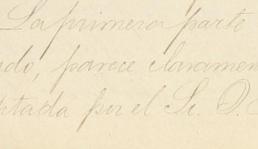 La primera parte
ado, parece claramen
ptada por el Sr. D.